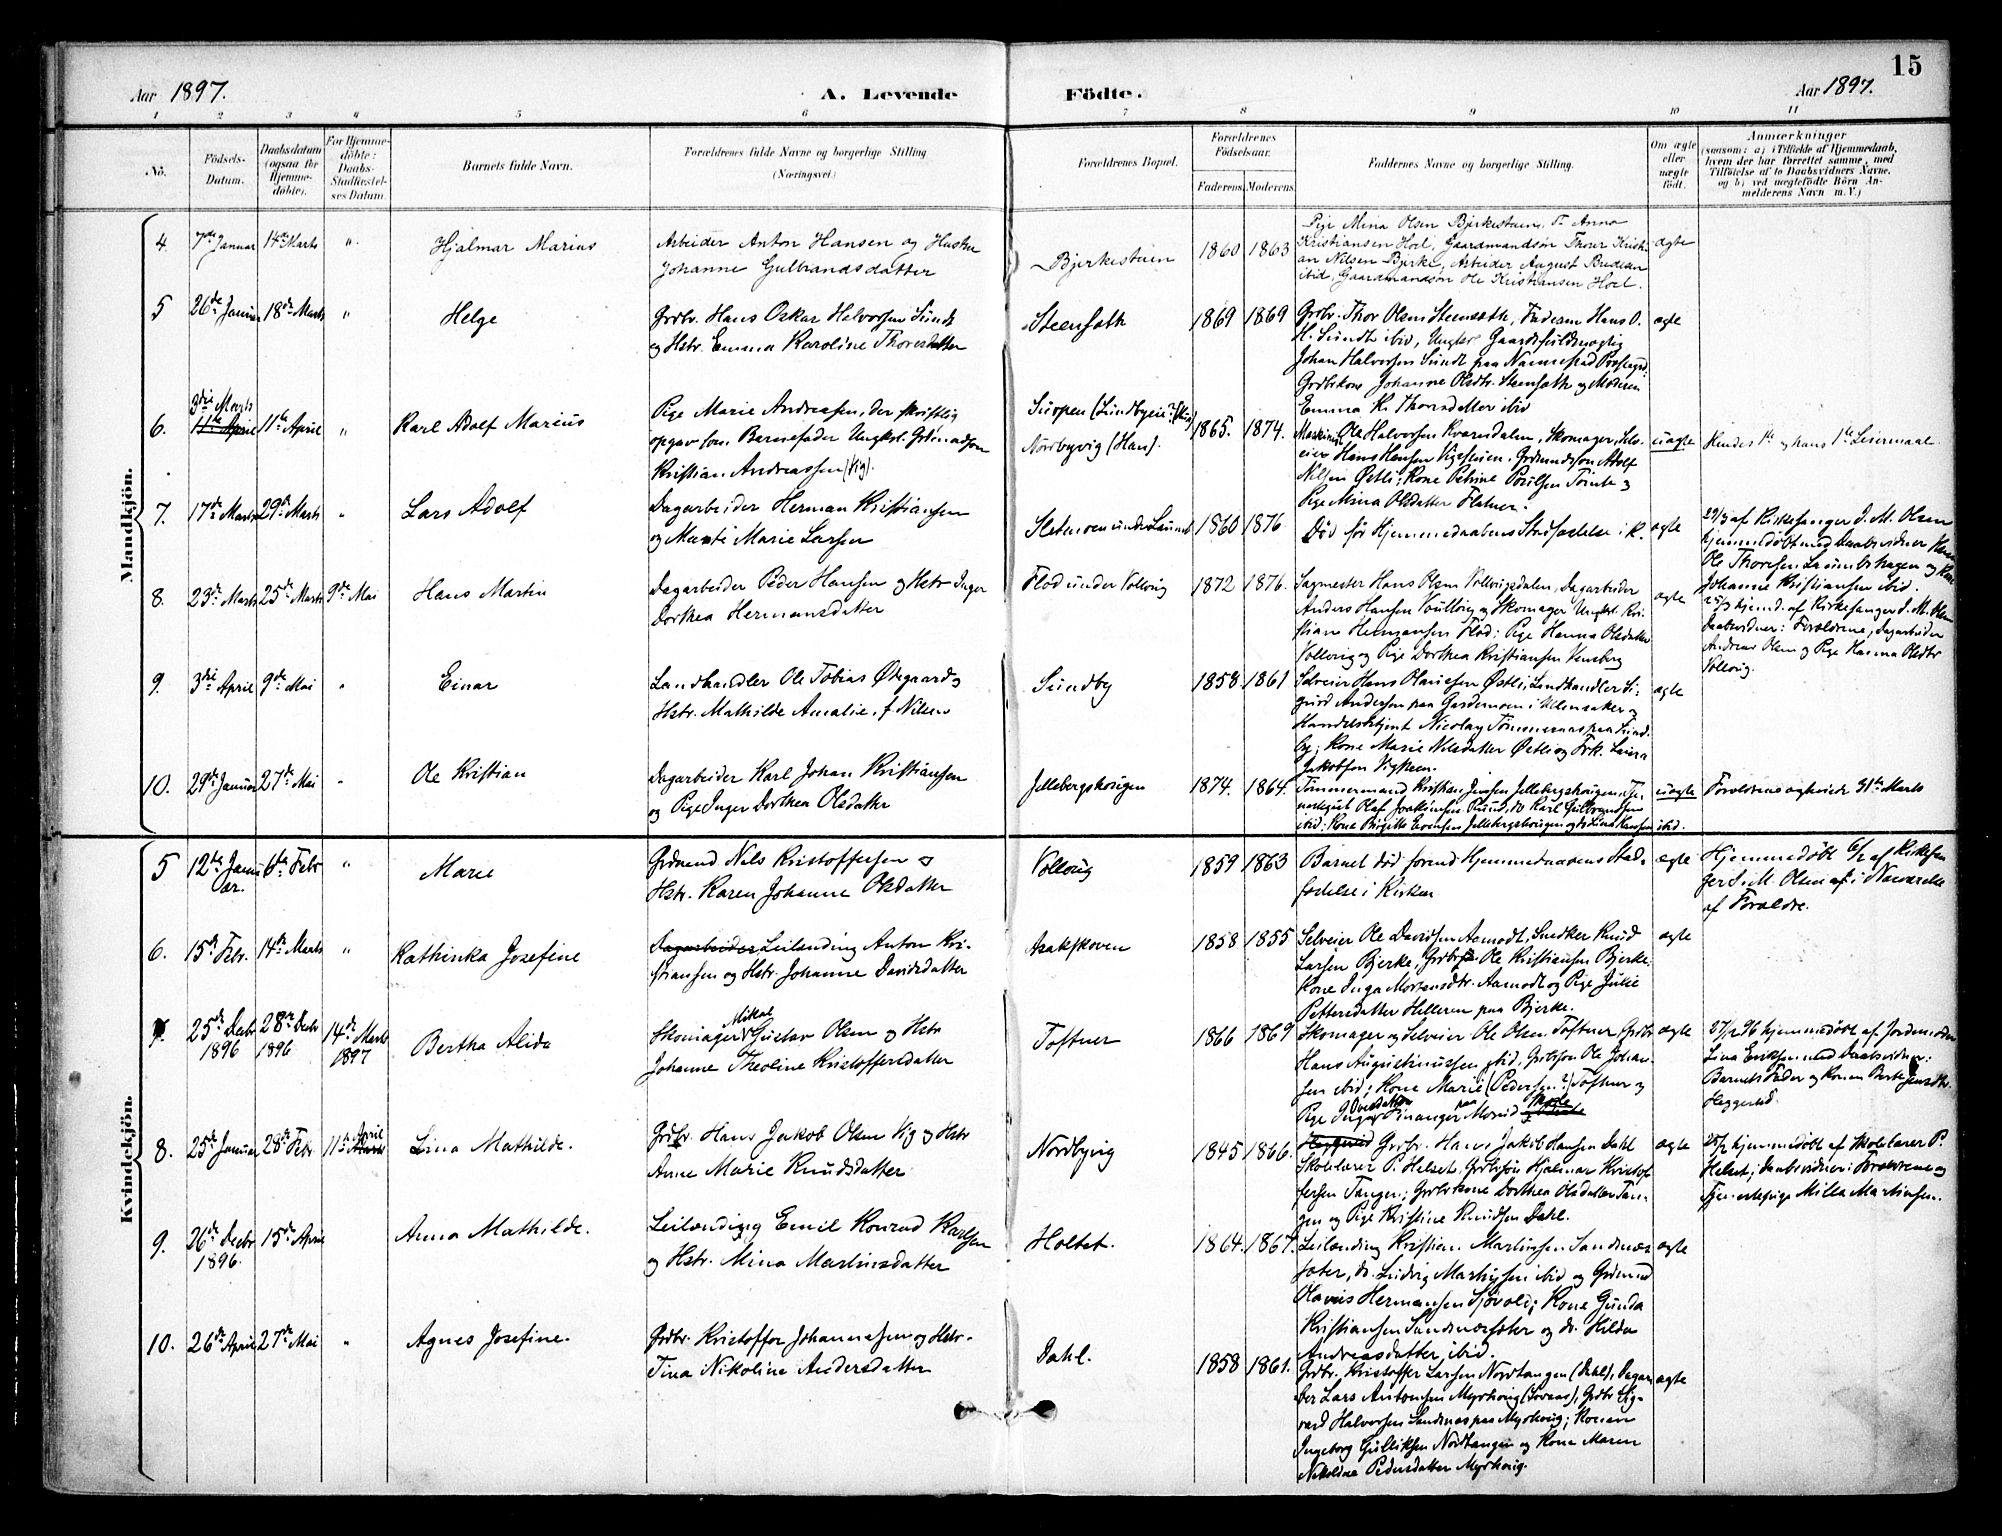 15
Aar 1897.
A. Levende Födte.
Aar 1897.
1 2 3 4 5 6 7 8 9 10 11
No.
Födsels-Datum.
Daabsdatum (ogsaa for Hjemme-döbte).
For Hjemme-döbte: Daabs-Stadfæstel-ses Datum.
Barnets fulde Navn.
Forældrenes fulde Navne og borgerlige Stilling
(Næringsvei.)
Forældrenes Bopæl.
Forældrenes Födselsaar.
Faderens. Moderens.
Faddernes Navne og borgerlige Stilling.
Om ægte eller uægte födt.
Anmærkninger
(saasom: a) i Tilfælde af Hjemmedaab,
hvem der har forrettet samme, med
Tilföielse af to Daabsvidners Navne,
og b) ved uægtefödte Börn An-
melderens Navn m. V.)
Mandkjön.
4 7de Januar 14de Marts "
Hjalmar Marius
Arbeider Anton Hansen og Hustru
Johanne Gulbrandsdatter
Bjerkestuen
1860 1863
Pige Mina Olsen Bjerkestuen, Anna
Kristiansen Hoel, Gaardmandsøn Thour Kristi-
an Nilsen Bjerke, Arbeider August
ibid, Gaardmandsøn Ole Kristiansen Hoel.
ægte
5 26de Januar 18de Marts "
Helge
Grdbr. Hans Oskar Halvorsen Sundt
og Hstr. Emma Karoline Thorsdatter
Steensath
1869 1869
Grdbr. Thor Olsen Steensath, Faderen Hans O.
H. Sundt ibid, Ungkr. Gaardsfuldmægtig
Johan Halvorsen Sundt paa Nannestad Præstegrd.
Grdbrkone Johanne Olsdtr. Steensath og Moderen
Emma K. Thorsdatter ibid
ægte
6. 3die Marts 11te April 11te April "
Karl Adolf Marius
Pige Marie Andreassen, der skriftlig
opgav som Barnefader Ungkrl. Grdmandsøn
Kristian Andreassen (Vig).
Nordbyvig (Han).
1865. 1874.
Ole Halvorsen Kværndalen, Skomager, Selv-
eier Hans Hansen, Grdmandsøn Adolf
Nilsen Østli; Kone Petrine Poulsen Tomte og
Pige Mina Olsdatter Flatner.
uægte
Hendes 1te og hans 1te Leiermaal
7. 17de Marts 29de Marts "
Lars Adolf
Dagarbeider Herman Kristiansen
og Marie Larsen
1860 1876
Død før Hjemmedaabens Stadfæstelse i K.
ægte
29/3 af Kirkesanger J. M. Olsen
hjemmedøbt med Daabsvidner
Ole Thoresen og Kone
Johanne Kristiansen ibid.
8. 23de Marts 25de Marts 9de Mai
Hans Martin
Dagarbeider Peder Hansen og Hstr Inger
Dorthea Hermansdatter
Flod under Vollovig
1872 1876.
Sagmester Hans Olsen Vollovigsdalen, Dagarbeider
Anders Hansen og Skomager Ungkrl. Kri-
stian Hermansen Flod; Pige Hanna Olsdatter
Vollovig og Pige Dorthea Kristiansen
ægte
25/3 hjemd. af Kirkesanger J. M. Olsen
Daabsvidner: Forældrene, Dagarbeider
Andreas Olsen og Pige Hanna Olsdtr
Vollovig.
9. 3die April 9de Mai "
Einar
Landhandler Ole Tobias Ødegaard og
Hstr. Mathilde Amalie f. Nilsen
Sundby
1858. 1861
Selveier Hans Olausen Østli, Landhandler Si-
gurd Andersen paa Gardemoen i Ullensaker og
Handelsbetjent Nicolay Tømmeraas paa Sund-
by; Kone Marie Nilsdatter Østli og Frk. Laura
Jakobsen Vigsteen.
ægte
10. 29de Januar 27de Mai "
Ole Kristian
Dagarbeider Karl Johan Kristiansen
og Pige Inger Dorthea Olsdatter
Jellebergshougen
1874. 1864.
Tømmermand Kristian Jensen Jellebergshougen,
Olaf Joakimsen Ruud, do Karl Gulbrandsen
ibid; Kone Birgitte Evensen Jellebergshougen og do Lina Hansen ibid.
uægte
Forældrene ægteviede 31te Marts
Kvindekjön.
5 12te Januar. 6te Febr "
Marie
Grdmand Nils Kristoffersen og
Hstr. Karen Johanne Olsdatter
Vollovig
1859 1863
Barnet død forend Hjemmedaabens Stad-
fæstelse i Kirken
ægte
Hjemmedøbt 6/2 af Kirkesan
ger J. M. Olsen i Nærværelse
af Forældre.
6. 15de Febr. 14de Marts "
Kathinka Josefine
Dagarbeider Leilænding Anton Kri-
stiansen og Hstr. Johanne Davidsdatter
Asakskoven
1858 1855
Selveier Ole Davidsen Aamodt, Snedker Knud
Larsen Bjerke, Grdbr Ole Kristiansen Bjerke;
Kone Inga Mortensdtr. Aamodt og Pige Julie
Pettersdatter Helleren paa Bjerke.
ægte
7. 25de Decbr 1896 28de Decbr 1896 14de Marts 1897
Bertha Alida
Skomager Mikal Gustav Olsen og Hstr
Johanne Theoline Kristoffersdatter
Toftner
1866 1869
Skomager og Selveier Ole Olsen Toftner, Grdbr
Hans Augustinussen ibid, Grdbrsøn Ole Johan-
sen ibid; Kone Marie (Pedersen?) Toftner og
Pige Inger
ægte
27/12 96 hjemmedøbt af Jordemoder
Lina Eriksen med Daabsvidner:
Barnets Fader og Konen
Heggerud.
8. 25de Januar 28de Febr 11te April
Lina Mathilde.
Grdbr. Hans Jakob Olsen Vig og Hstr
Anne Marie Knudsdatter
Nordbyvig
1845 1866.
Grdbr. Hans Jakob Hansen Dahl
Skolelærer P. Helset, Grdbrsøn Hjalmar Kristof-
fersen Tangen; Grdbrkone Dorthea Olsdatter Tan-
gen og Pige Kristine Knudsen Dahl.
ægte
28/2 hjemmedøbt af Skolelærer P.
Helset; Daabsvidner: Forældrene og
Tjenestepige Milla Martinsen.
9. 26de Decbr 1896. 15de April
Anna Mathilde.
Leilænding Emil Konrad Karlsen
og Hstr. Mina Martinsdatter
Holtet.
1864. 1867.
Leilænding Kristian Martinsen Sandnæs-
sæter, do. Ludvig ibid og Grdmand
Olavus Hermansen Sjøvold; Kone Gunda
Kristiansen Sandnæssæter og do. Hilda
Andreasdatter ibid.
ægte
10. 26de April 27de Mai "
Agnes Josefine.
Grdbr. Kristoffer Johannessen og Hstr.
Tina Nikoline Andersdatter
Dahl.
1858 1861.
Grdbr. Kristoffer Larsen Nordtangen (Dahl), Dagar-
ber Lars Antonsen Myrhoug, Grdbr Sig-
vard Halvorsen Sandsnæs paa Myrhoug; Konen
Ingeborg Gulliksen Nordtangen og Kone Maren
Nikoline Pedersdatter Myrhoug.
ægte